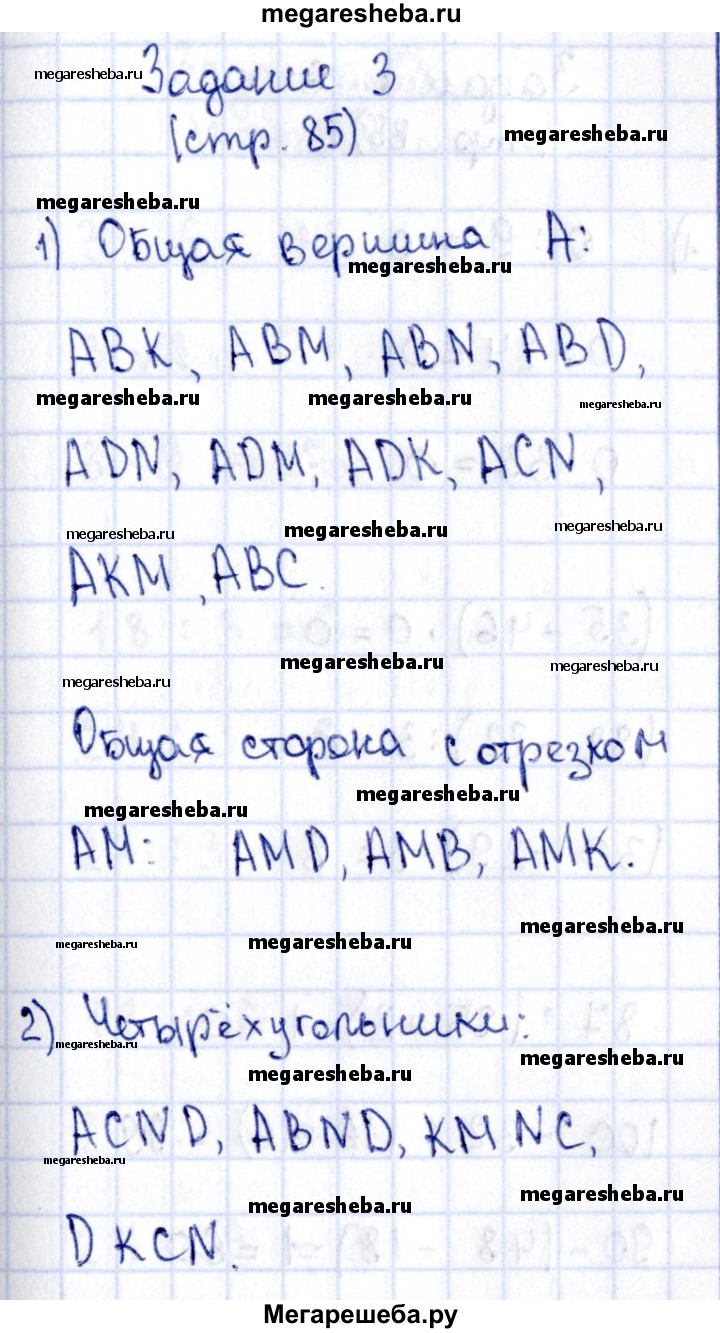 megaresheba.ru
megaresheba.ru
Задание 3
(стр. 85)
megaresheba.ru
megaresheba.ru
1) Общая вершина А:
megaresheba.ru
АВК, АВМ, АВN, АВD,
megaresheba.ru megaresheba.ru megaresheba.ru
АDN, АDМ, АDК, АСN,
megaresheba.ru megaresheba.ru megaresheba.ru
АКМ, АВС.
megaresheba.ru megaresheba.ru megaresheba.ru
Общая сторона с отрезком
megaresheba.ru megaresheba.ru
АМ: АМD, АМВ, АМК.
megaresheba.ru megaresheba.ru megaresheba.ru
2) Четырёхугольники:
megaresheba.ru megaresheba.ru megaresheba.ru
АСND, АВND, КМNС,
megaresheba.ru megaresheba.ru megaresheba.ru
DКСN.
Мегарешеба.ру